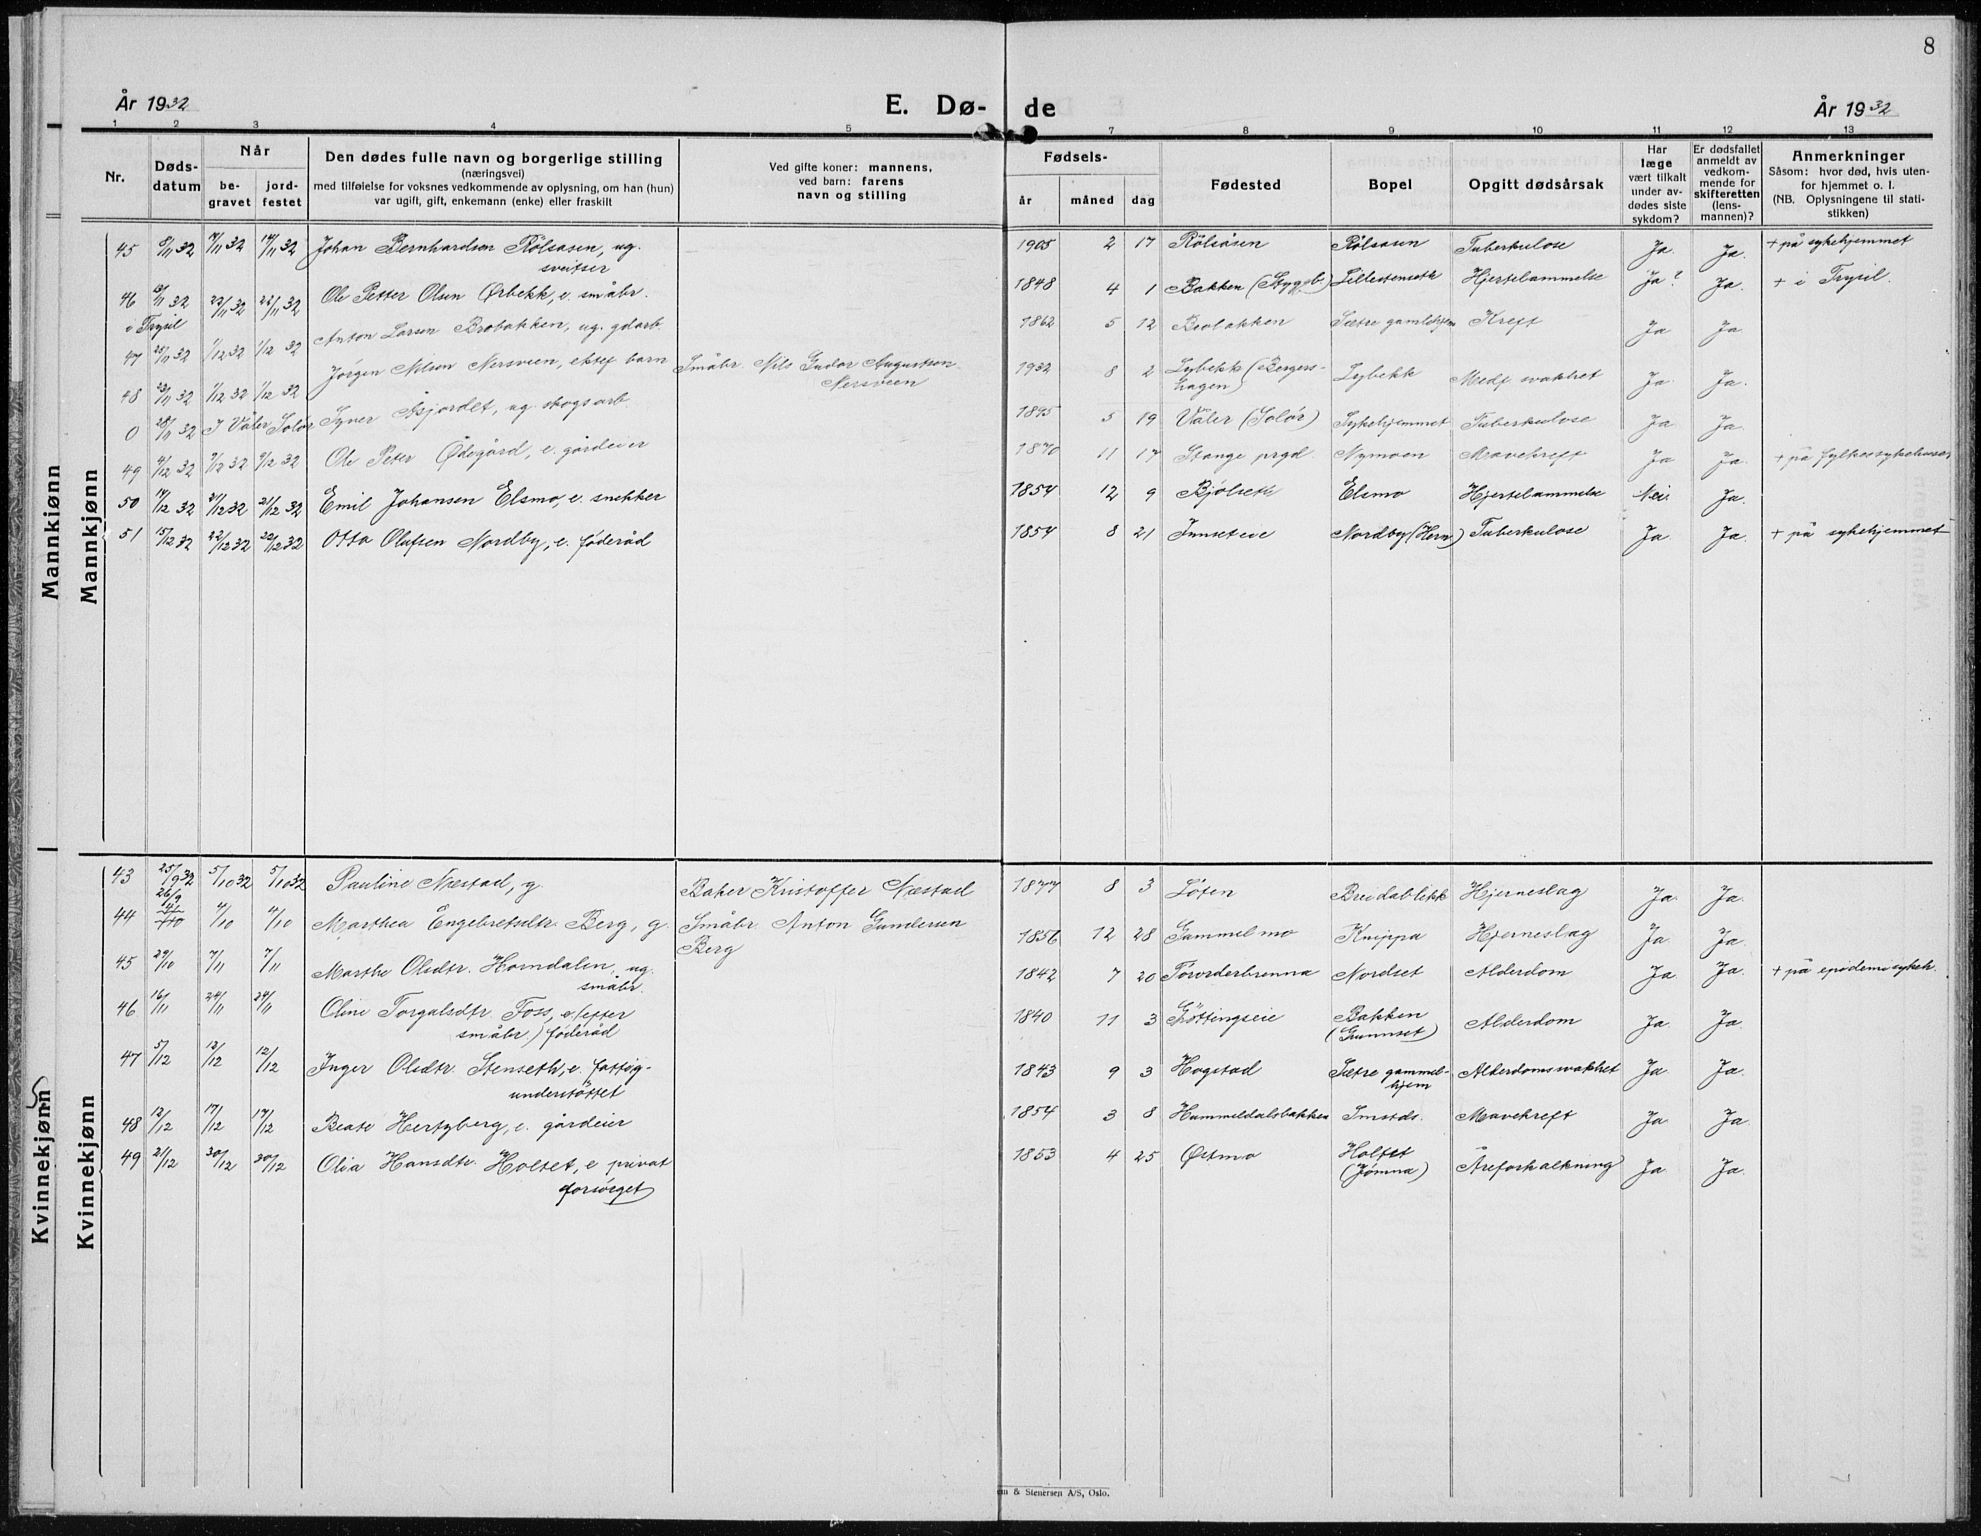 8
År 1932 E. Dø- de År 1932
1 2 3 4 5 7 8 9 10 11 12 13
Nr. Døds-datum Når be-gravet jord-festet Den dødes fulle navn og borgerlige stilling (næringsvei) med tilføielse for voksnes vedkommende av oplysning, om han (hun) var ugift, gift, enkemann (enke) eller fraskilt Ved gifte koner: mannens, ved barn: farens navn og stilling Fødsels- år måned dag Fødested Bopel Opgitt dødsårsak Har læge vært tilkalt under av-dødes siste sykdom? Er dødsfallet anmeldt av vedkom-mende for skifteretten (lens-mannen)? Anmerkninger Såsom: hvor død, hvis uten-for hjemmet o. l. (NB. Oplysningene til stati-stikken)
Mannkjønn
Mannkjønn
45 8/11 32 14/11 32 14/11 32 Johan Bernhardsen Rölsåsen, ug. — 1905 2 17 Rölsåsen Rölsåsen Tuberkulose Ja. Ja. + på sykehjemmet
sveitser
46 32 22/11 32 22/11 32 Ole Petter Olsen Ørbekk, e. småbr. 1848 4 1 Bakken (Stygsb.) Lillestenseth Hjertelammelse Ja? Ja. + i Trysil.
i Trysil
47 25/11 32 1/12 32 1/12 32 Anton Larsen Brobakken, ug. gdarb. 1862 5 12 Brobakken Sætre gamlehjem Kreft Ja Ja.
48 23/11 32 1/12 32 1/12 32 Jørgen Nilsen Nersveen, ektef barn Småbr. Nils Gudor Augustsen 1932 8 2 Lybekk (Bergers- Lybekk Medf svakhet Ja Ja.
Nersveen hagen)
0 28/11 32 I Våler Solör Syver Åsjordet, ug. skogsarb 5 19 Våler (Solör) Sykehjemmet Tuberkulose Ja Ja.
49 4/12 32 9/12 32 9/12 32 Ole Peter Ödegård, e. gårdeier 1870 11 17 Stange prgd. Nymoen Mavekreft Ja Ja. + på fylkessykehuset
50 14/12 32 21/12 32 21/12 32 Emil Johansen Elsmo, e. snekker 1854 12 9 Bjölseth Elsmo Hjertelammelse Nei Ja.
51 15/12 32 22/12 32 22/12 32 Otto Olufsen Nordby, e. føderåd 1854 8 21 Innseteie Nordby (Hern) Tuberkulose Ja. Ja. + på sykehjemmet
Kvinnekjønn
Kvinnekjønn
43 25/9 32 5/10 32 5/10 32 Pauline Næstad, g. Baker Kristoffer Næstad 1877 8 3 Löten Breidablikk Hjerneslag Ja. Ja.
44 26/9 4/10 4/10 Marthea Engebretsdtr. Berg, g. Småbr. Anton Gundersen 1856 12 28 Gammelmo Knippa Hjerneslag Ja. Ja.
Berg
45 29/10 7/11 7/11 Marthe Olsdtr. Horndalen, ug. 1842 7 20 Torderbrenna Nordset Alderdom Ja. Ja. + på epidemisykeh.
småbr.
46 16/11 24/11 24/11 Oline Torgalsdtr. Foss, e (efter 1840 11 3 Göttingseie Bakken Alderdom Ja. Ja.
småbr.) føderåd (Grunnset)
47 5/12 12/12 12/12 Inger Olsdtr. Stenseth, e. fattig- 1843 9 3 Hogstad Sætre gammel- Alderdomssvakhet Ja Ja.
understöttet hjem
48 12/12 17/12 17/12 Beate Hertzberg, e. gårdeier 1854 3 8 Hummeldalsbakken Imstds. Mavekreft Ja Ja.
49 21/12 30/12 30/12 Olia Hansdtr. Holtet, e privat 1853 4 25 Østmo Holtet Åreforkalkning Ja Ja.
forsörget (Jömna)
& Stenersen A/S, Oslo.